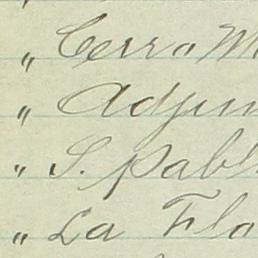 " Cerro M
" Adjun
" S. Pabl
" La Flo